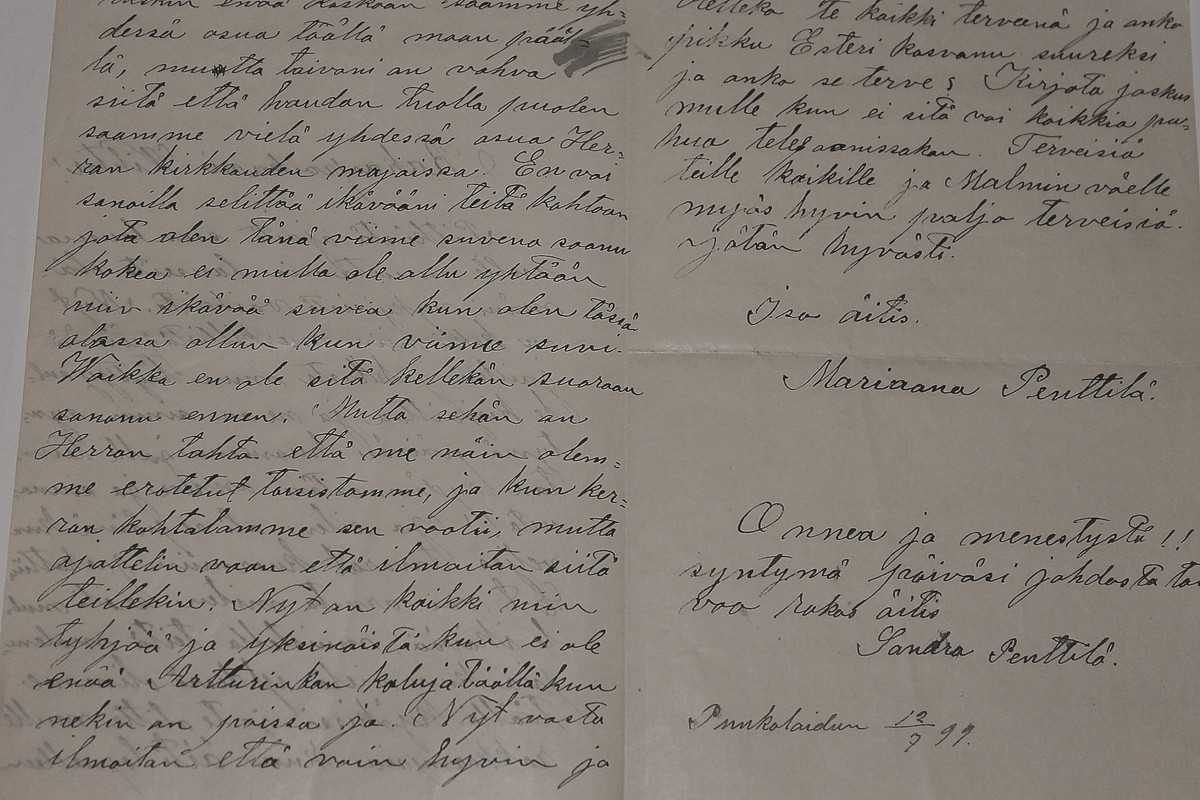 enää koskaan saamme yh-
dessä asua täällä maan pääl-
lä, mutta toivoni on vahva
siitä että haudan tuolla puolen
saamme vielä yhdessä asua Her-
ran kirkkauden majoissa. En voi
sanoilla selittää ikävääni teitä kohtaan
jota olen tänä viime suvena saanu
kokea ei mulla ole ollu yhtään
niin ikävää suvea kun olen tässä
olossa olluv kun viime suvi.
Waikka en ole sitä kellekän suoraan
sanonu ennen. Mutta sehän on
Herran tahto että me näin olem-
me erotetut toisistamme, ja kun ker-
ran kohtalomme sen vaatii, mutta
ajattelin vaan että ilmoitan siitä
teillekin. Nyt on kaikki niin
tyhjää ja yksinäistä kun ei ole
enää Artturinkan kaluja täällä kun
nekin on poissa jo. Nyt vasta
ilmoitan että voin hyvin ja
Oletteko te kaikki terveenä ja onko
pikku Esteri kasvanu suureksi
ja onko se terve; Kirjota joskus
mulle kun ei sitä voi kaikkia pu-
hua telesoonissakan. Terveisiä
teille kaikille ja Malmin väelle
myös hyvin paljo terveisiä.
Jätän hyvästi.
Iso äitis.
Mariaana Penttilä.
Onnea ja menestystä!!
syntymä päiväsi johdosta to
voo rakas äitis
Sandra Penttilä.
Punkolaidun 12/7 99.